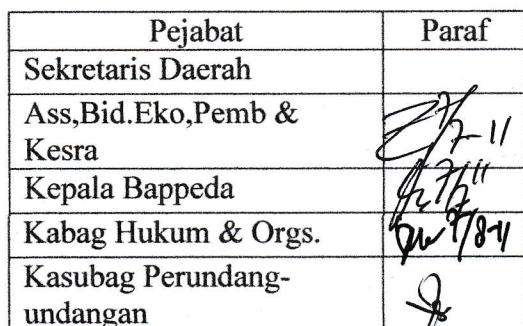 Pejabat Paraf
Sekretaris Daerah
Ass,Bid.Eko,Pemb &
Kesra
Kepala Bappeda
Kabag Hukum & Orgs.
Kasubag Perundang-
undangan